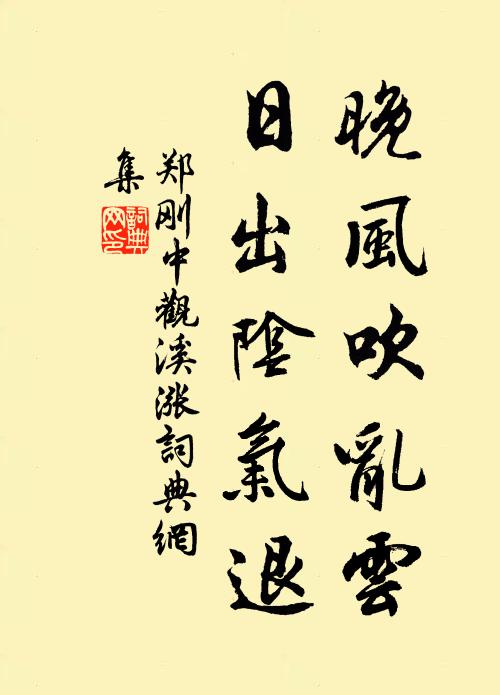 晚風吹亂雲
日出陰氣退
郑刚中觀溪漲詞典網
集
詞典
网印